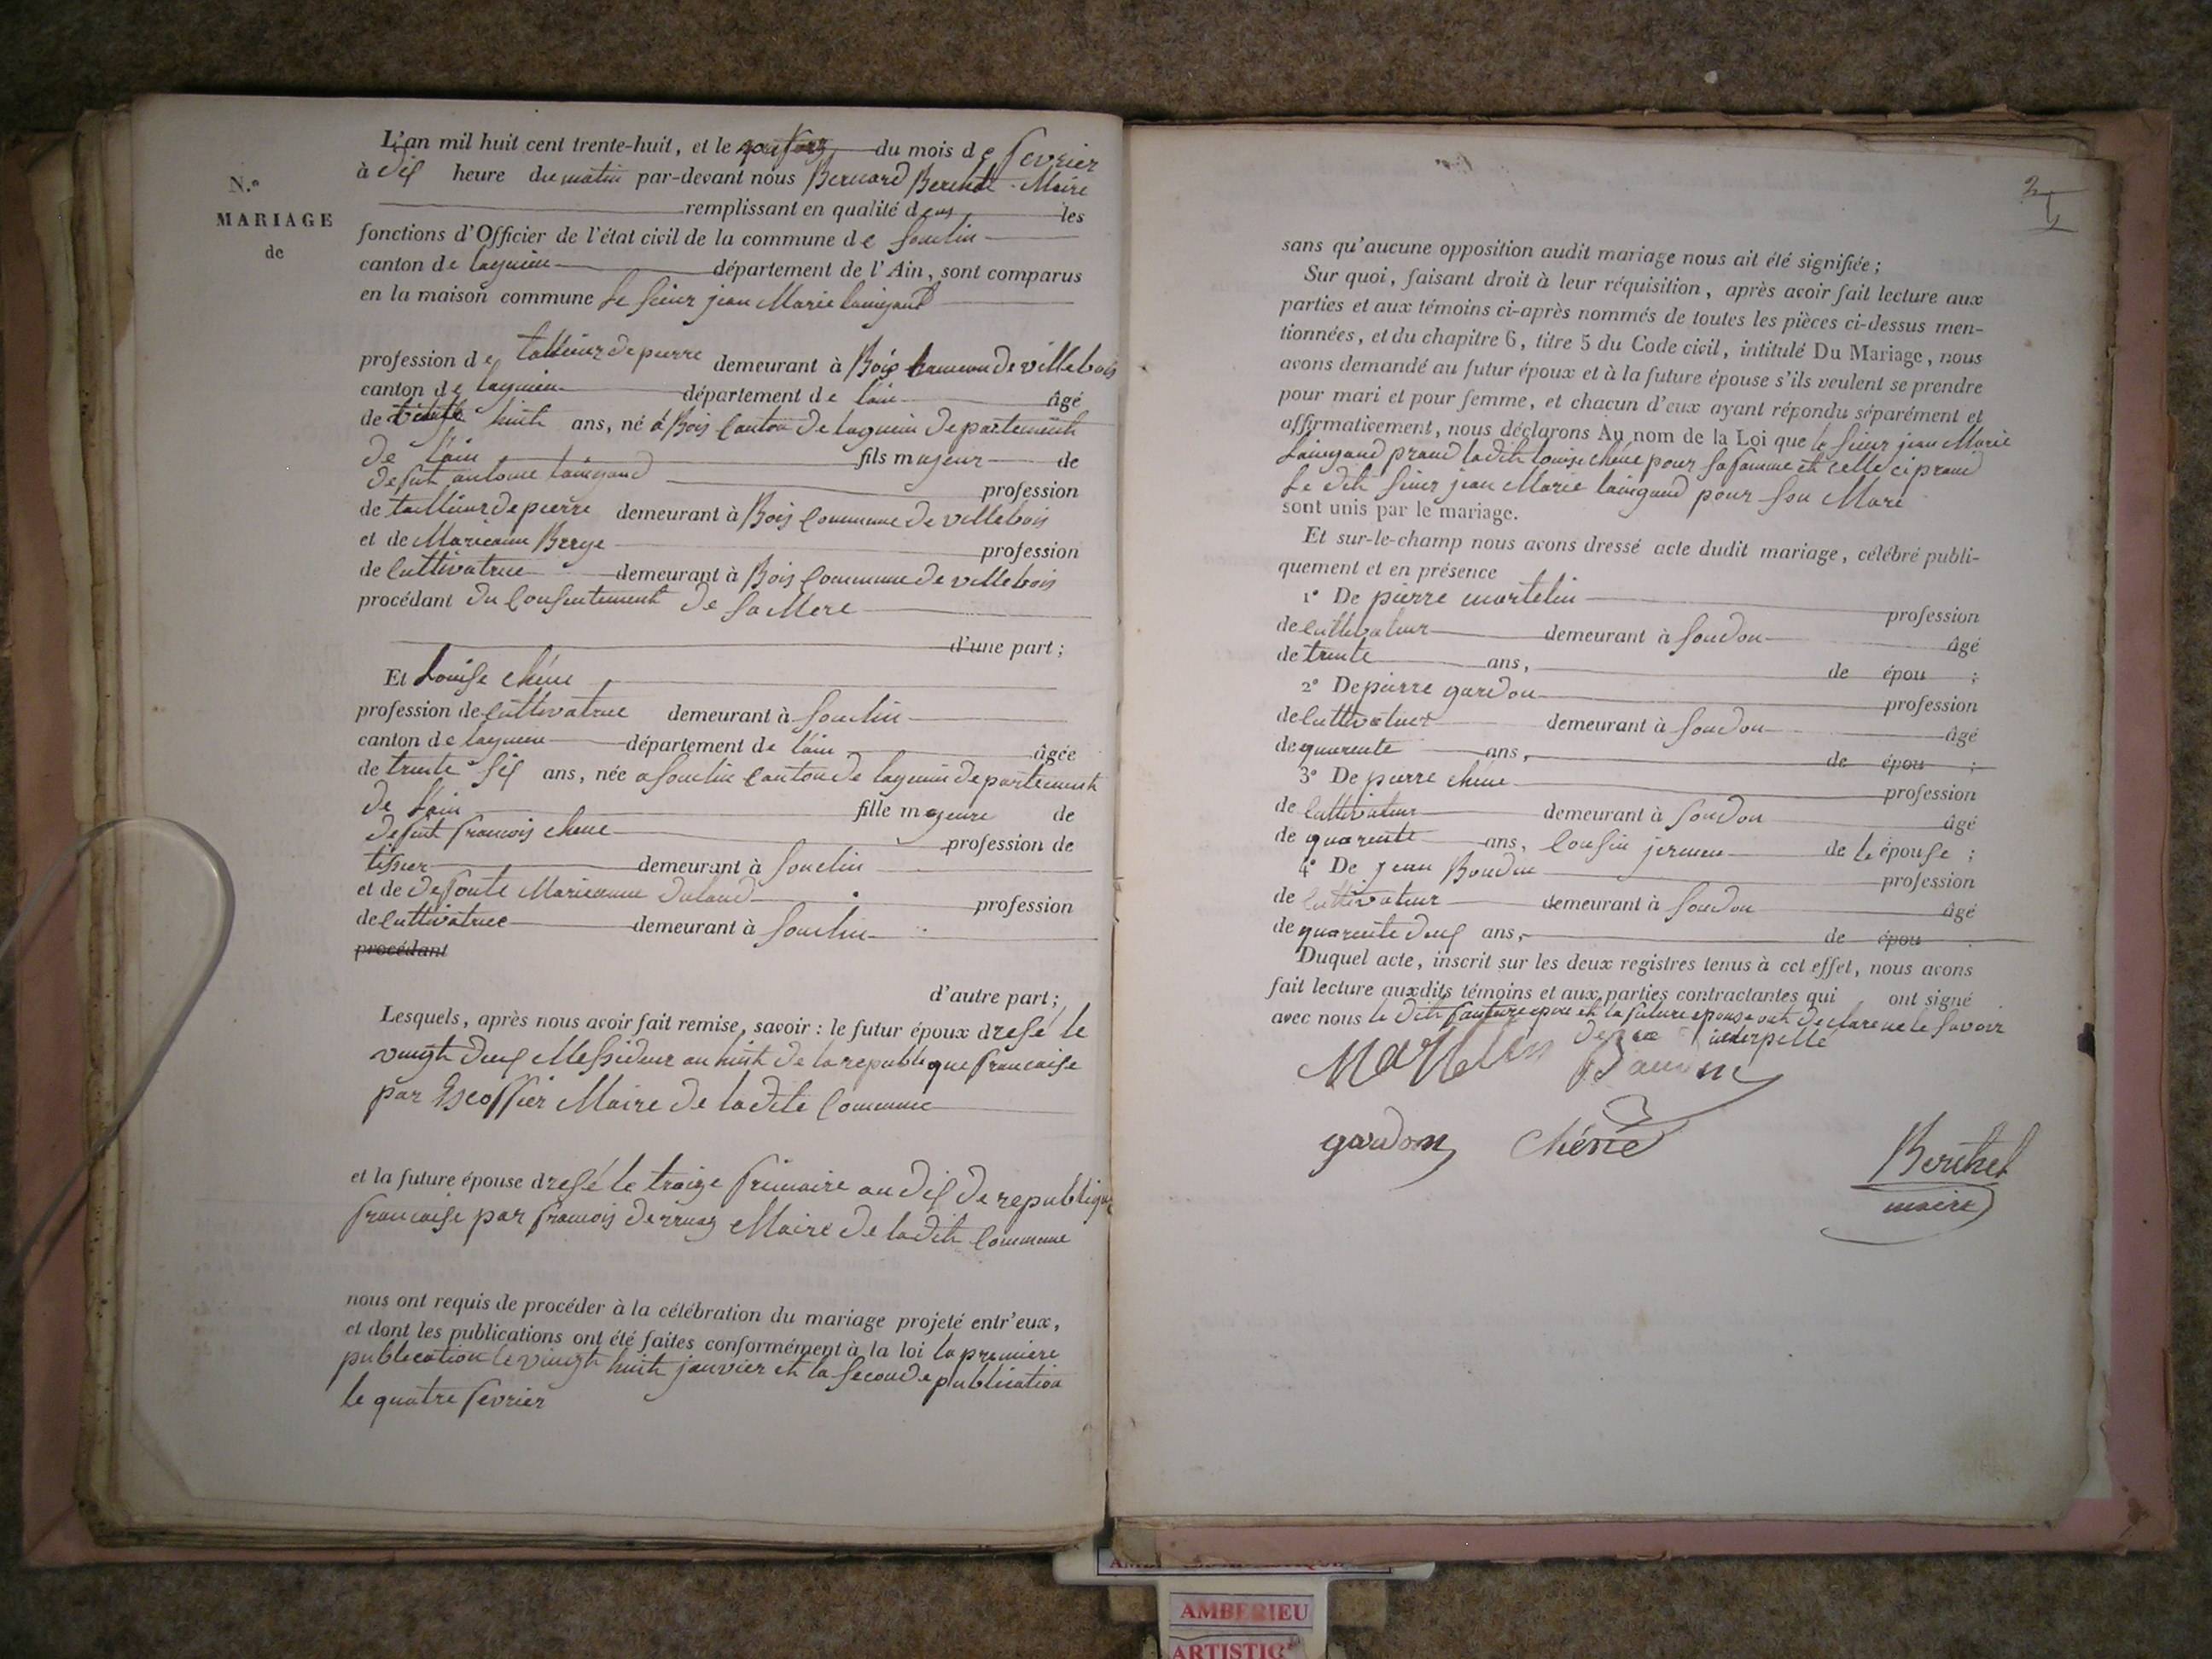 N.º
MARIAGE
de
L'an mil huit cent trente-huit, et le du mois de fevrier
à dix heure du matin par-devant nous Bernard Berthet Maire
remplissant en qualité d les
fonctions d'Officier de l'état civil de la commune de Souclin
canton de lagnieu département de l'Ain, sont comparus
en la maison commune Le sieur jean Marie
profession de tallieur de pierre demeurant à Bois hameau de villebois
canton de lagnieu département de l'ain âgé
de huit ans, né à Bois Canton de lagnieu departement
de l'ain fils majeur de
defunt antoine profession
de tallieur de pierre demeurant à Bois Commune de villebois
et de Marieanne Berge profession
de Cultivatrice demeurant à Bois Commune de villebois
procédant du Consentement de Sa Mere
d'une part ;
Et Louise chêne
profession de Cultivatrice demeurant à Souclin
canton de lagnieu département de l'ain âgée
de trente six ans, née a Souclin Canton de lagnieu departement
de l'ain fille mageure de
defunt francois chene profession de
tissier demeurant à Souclin
et de defunte Marieanne profession
de Cultivatrice demeurant à Souclin
procédant
d'autre part ;
Lesquels, après nous avoir fait remise, savoir : le futur époux dresé le
vingt deux Messideur an huit de la republique francaise
par Escoffier Maire de ladite Commune
et la future épouse dresé le traize frimaire an dix de republique
francaise par francois Maire de ladite Commune
nous ont requis de procéder à la célébration du mariage projeté entr'eux,
et dont les publications ont été faites conformément à la loi la premiere
publication le vingt huit janvier et la seconde publication
le quatre fevrier
2
sans qu'aucune opposition audit mariage nous ait été signifiée ;
Sur quoi, faisant droit à leur réquisition, après avoir fait lecture aux
parties et aux témoins ci-après nommés de toutes les pièces ci-dessus men-
tionnées, et du chapitre 6, titre 5 du Code civil, intitulé Du Mariage, nous
avons demandé au futur époux et à la future épouse s'ils veulent se prendre
pour mari et pour femme, et chacun d'eux ayant répondu séparément et
affirmativement, nous déclarons Au nom de la Loi que le sieur jean Marie
prand ladite louise chêne pour sa famme et celle ci prand
Le dit sieur jean Marie pour son Mari
sont unis par le mariage.
Et sur-le-champ nous avons dressé acte dudit mariage, célébré publi-
quement et en présence
1º De pierre martelin profession
de Cultivateur demeurant à Soudon âgé
de trente ans, de épou ;
2º De pierre gardon profession
de Cultivateur demeurant à Soudon âgé
de quarente ans, de épou ;
3º De pierre chene profession
de Cultivateur demeurant à Soudon âgé
de quarente ans, Cousin jermen de le épouse ;
4º De jean Boudin profession
de Cultivateur demeurant à Soudon âgé
de quarente deux ans, de épou
Duquel acte, inscrit sur les deux registres tenus à cet effet, nous avons
fait lecture auxdits témoins et aux parties contractantes qui ont signé
avec nous le dit epoux et la future epouse ont declare ne le savoir
de ce interpellé
Martelin
gardon chéne
Berthet
maire
AMBERIEU
ARTISTIQ